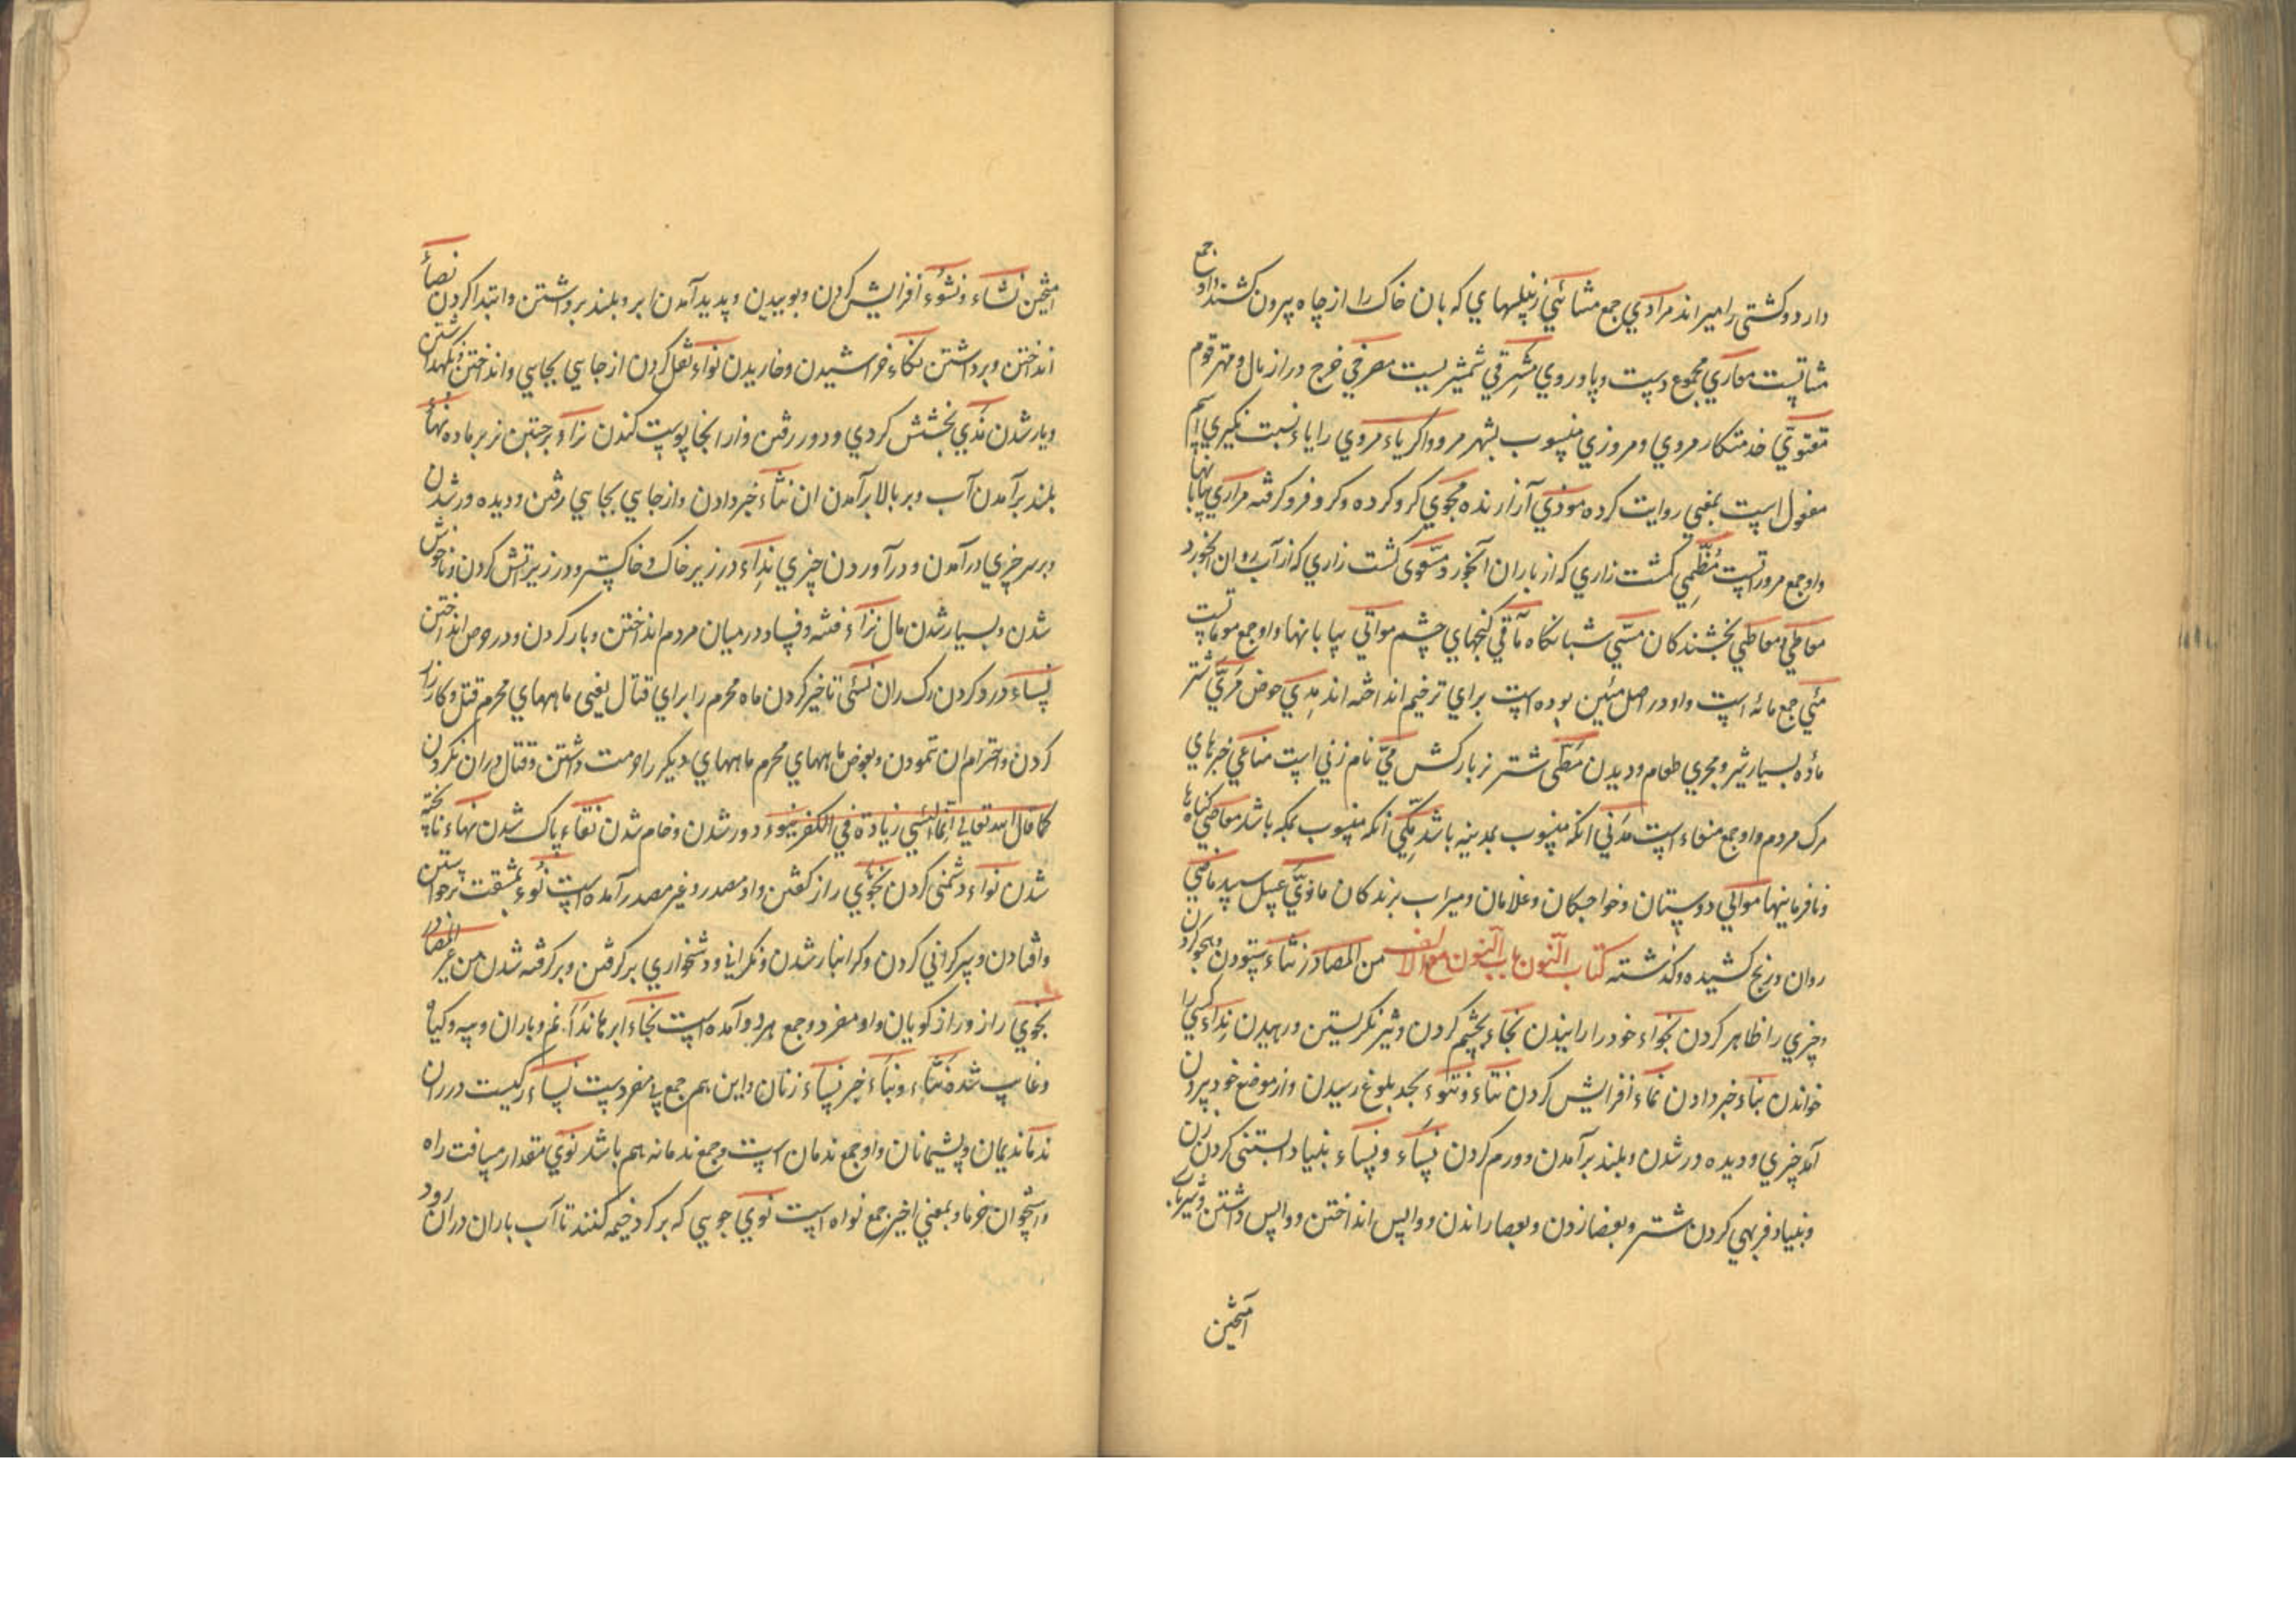 دارد و کشتی را میراند مرادي جمع مشائي زنبیلهاي که بان خاک را از چاه بیرون کشند و او جمع
مشاتست معاري مجموع دست و پا و روي مشرقي شمشیریست مصرفي خرج دراز مال و مهتر قوم
مقتوي خدمتکار مروي و مروزي منسوب بشهر مرو و اکر یاء مروي را یاء نسبت نکیري اسم
مفعول است بمعني روایت کرده موذي آزارنده محوي کرد کرده و کرد فرو کرفته مراري بیابانها
و او جمع مرورات است مظمي کشت زاري که از باران آبخورد مسقوی کشت زاري که از آب روان آبخورد
معاطي و معاطي بخشندکان مسي شبانکاه مآقي کنجهاي چشم موامي بیابانها و او جمع موماتست
مئي جمع مائه است و او در اصل مئین بوده است براي ترخیم انداخته اند مدي حوض مري شتر
ماده بسیار شیر و مجري طعام و دیدن مطی شتر نر بارکش مي نام زني است مناعي خبرهاي
مرک مردم و او جمع منعاء است مدني انکه منسوب بمدینه باشد مکي انکه منسوب بمکه باشد معاصي کناه ها
و نافرمانیها موالي دوستان و خواجکان و غلامان و میراب برندکان ماذي عسل سپید ماضي
روان و رنج کشیده و کذشته کتاب النون باب النون مع الالف من المصادر نثاء ستودن و هجو کردن
و چیزي را ظاهر کردن نجواء خود را رانیدن نجاء بچشم کردن و تیز نکریستن و رهیدن نداء کسي را
خواندن نباء خبر دادن نماء افزایش کردن نتاء و نتوء بحد بلوغ رسیدن و از موضع خود بیرون
آمدن چیزي و دیده ور شدن و بلند برآمدن و ورم کردن نساء و نساء بنیاد آبستنی کردن زن
و بنیاد فربهي کردن شتر و بعصا زدن و بعصا راندن و واپس انداختن و واپس داشتن و شیر باب
آمیختن
آمیختن نشاء و نشوء افزایش کردن و بوییدن و پدید آمدن ابر و بلند برداشتن و ابتدا کردن نصاء
انداختن و برداشتن نکاء خراشیدن و خاریدن نواء نقل کردن از جایي بجایي و انداختن و نکهداشتن
و یار شدن ندي بخشش کردي و دور رفتن و از انجا پوست کندن نزاء برجستن نر بر ماده نهاء
بلند برآمدن آب و بر بالا برآمدن ان نثاء خبر دادن و از جایي بجایي رفتن و دیده ور شدن
و بر سر چیزي درآمدن و درآوردن چیزي نداء در زیر خاک و خاکستر و در زیر اتش کردن و ناخوش
شدن و بسیار شدن مال نزاء فتنه و فساد در میان مردم انداختن و بار کردن و در حوض انداختن
نساء درد کردن رک ران نسئي تاخیر کردن ماه محرم را براي قتال یعنی ماههاي محرم قتل و کارزار
کردن و احترام ان نمودن و بعوض ماههاي محرم ماههاي دیکر را حرمت داشتن و قتال دران نکردن
کما قال الله تعالی انما النسئي زیادة في الکفر نبوء دور شدن و خام شدن نقاء پاک شدن نهاء ناپخته
شدن نواء دشمنی کردن نجوي راز کفتن و او مصدر و غیر مصدر آمده است نوء بمشقت برخواستن
و افتادن و سپرکراني کردن و کرانبار شدن و نکراني و دشخواري برکرفتن و برکرفته شدن من غیر المصادر
نجوي راز و رازکویان و او مفرد و جمع هر دو آمده است نجاء ابرها نداء نم و باران و پیه و کیاه
و غایب شده نثاء و نباء خبر نساء زنان و این هم جمع بي مفردست نساء رکیست در ران
ندما ندیمان و پشیمانان و او جمع ندمان است و جمع ندمانه هم باشد نوي مقدار مسافت راه
و استخوان خرما و بمعني اخیر جمع نواه است نوي جویي که بر کرد خیمه کنند تا آب باران دران رود